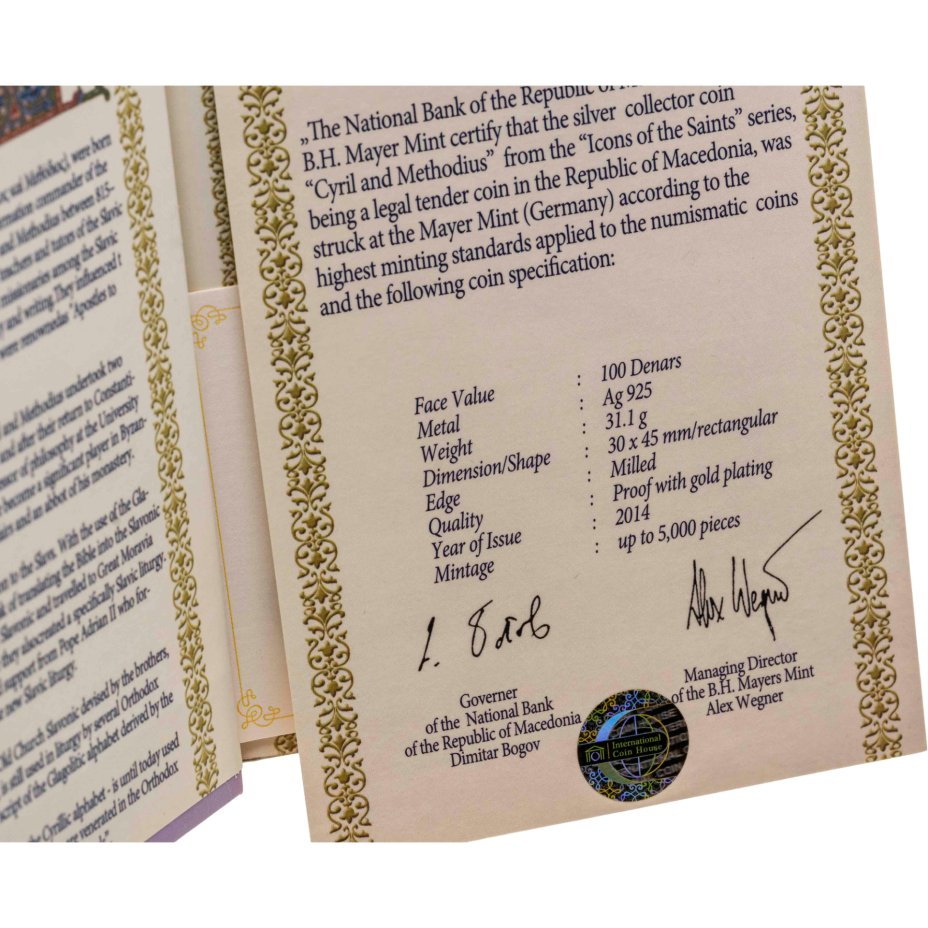 was born
commander of the
and Methodius between 815-
teachers and tutors of the Slavic
missionaries among the Slavic
and writing. They influenced t
were renowned as" Apostles to
and Methodius undertook two
and after their return to Constanti-
of philosophy at the University
become a significant player in Byzan-
and an abbot of his monastery.
to the Slavs. With the use of the Gla-
of translating the Bible into the Slavonic
Slavonic and travelled to Great Moravia
they alsocreated a specifically Slavic liturgy.
support from Pope Adrian II who for-
new Slavic liturgy.
Old Church Slavonic devised by the brothers,
is still used in liturgy by several Orthodox
script of the Glagolitic alphabet derived by the
the Cyrillic alphabet - is until today used
are venerated in the Orthodox
„The National Bank of the Republic of
B.H. Mayer Mint certify that the silver collector coin
“Cyril and Methodius” from the “Icons of the Saints” series,
being a legal tender coin in the Republic of Macedonia, was
struck at the Mayer Mint (Germany) according to the
highest minting standards applied to the numismatic coins
and the following coin specification:
Face Value : 100 Denars
Metal : Ag 925
Weight : 31.1 g
Dimension/Shape : 30 x 45 mm/rectangular
Edge : Milled
Quality : Proof with gold plating
Year of Issue : 2014
Mintage : up to 5,000 pieces
Alex Wegner
Governer
of the National Bank
of the Republic of Macedonia
Dimitar Bogov
Managing Director
of the B.H. Mayers Mint
Alex Wegner
International
Coin House